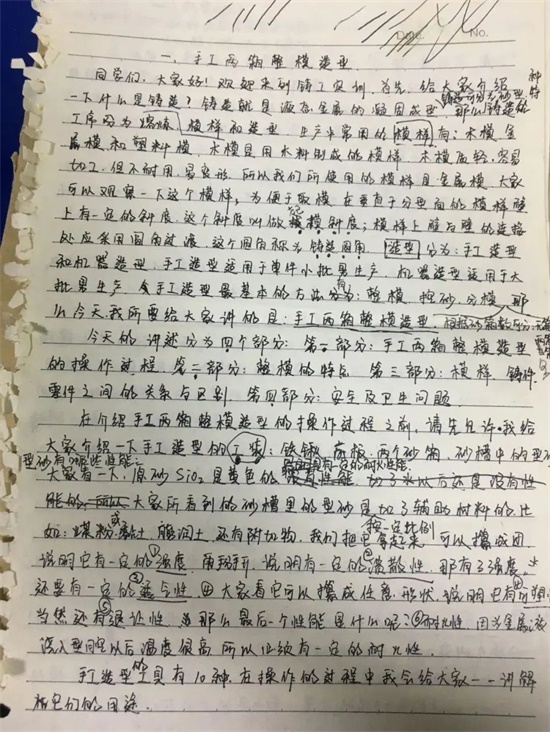 Date. No.
一、手工两箱整模造型
同学们,大家好!欢迎来到铸工实训,首先,给大家介绍
一下什么是铸造?铸造就是液态金属的凝固成型,那么铸造的
工序因为熔炼、模样和造型 生产中常用的模样有:木模、金
属模和塑料模 木模是用木料制成的模样,木模质轻,容易
加工,但不耐用,易变形,所以我们所使用的模样是金属模,大家
可以观察一下这个模样,为便于取模,在垂直于分型面的模样壁
上有一定的斜度,这个斜度叫做模斜度;模样上壁与壁的连接
处应采用圆角过渡,这个圆角称为铸造圆角,造型分为:手工造型
和机器造型,手工造型适用于单件小批量生产,机器造型适用于大
批量生产,手工造型最基本的方法分为:整模、挖砂、分模,那
么今天我所要给大家讲的是:手工两箱整模造型,
今天的讲述分为四个部分:第一部分:手工两箱整模造型
的操作过程,第二部分:整模的特点 第三部分:模样、铸件、
零件之间的关系与区别 第四部分:安全及卫生问题
在介绍手工两箱整模造型的操作过程之前,请先允许我给
大家介绍一下手工造型的工装:铁锹、底板、两个砂箱,砂槽中的型砂
大家看一下,原砂SiO2是黄色的 加了水以后还是没有性
能的 大家所看到的砂槽里的型砂是加了辅助材料的比
如:煤粉或黏土、膨润土,还有附加物,我们把它按一定比例拿起来 可以攥成团
说明它有一定的①强度,再掰开,说明有一定的②溃散性,那有了强度,
还要有一定的③透气性 ④大家看它可以攥成任意形状,说明它有可塑
当然还有⑤退让性 那么最后一个性能是什么呢?⑥耐火性,因为金属液
浇入型腔以后温度很高,所以必须有一定的耐火性。
手工造型的工具有10种,在操作的过程中我会给大家一一讲解
它们的用途。